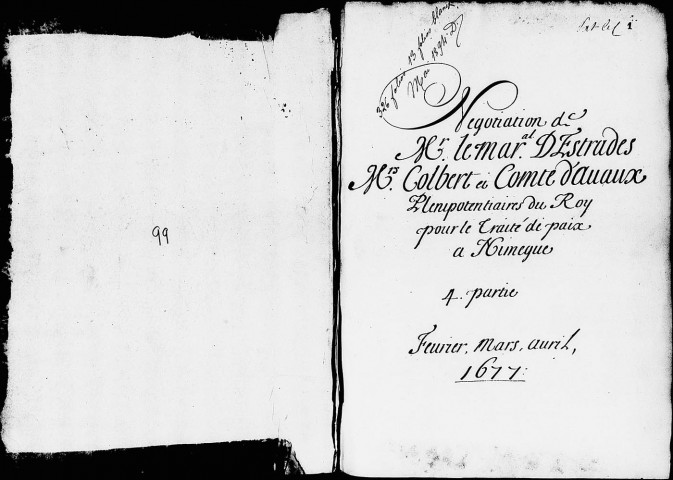 99
326 folios 13 folios blancs
Negotiation de
Mr. le mar.al D'Estrades
Mrs Colbert et Comte d'Auaux
Plenipotentiaires du Roy
pour le Traité de paix
a Nimegue
4. partie
Feurier, mars, auril,
1677: